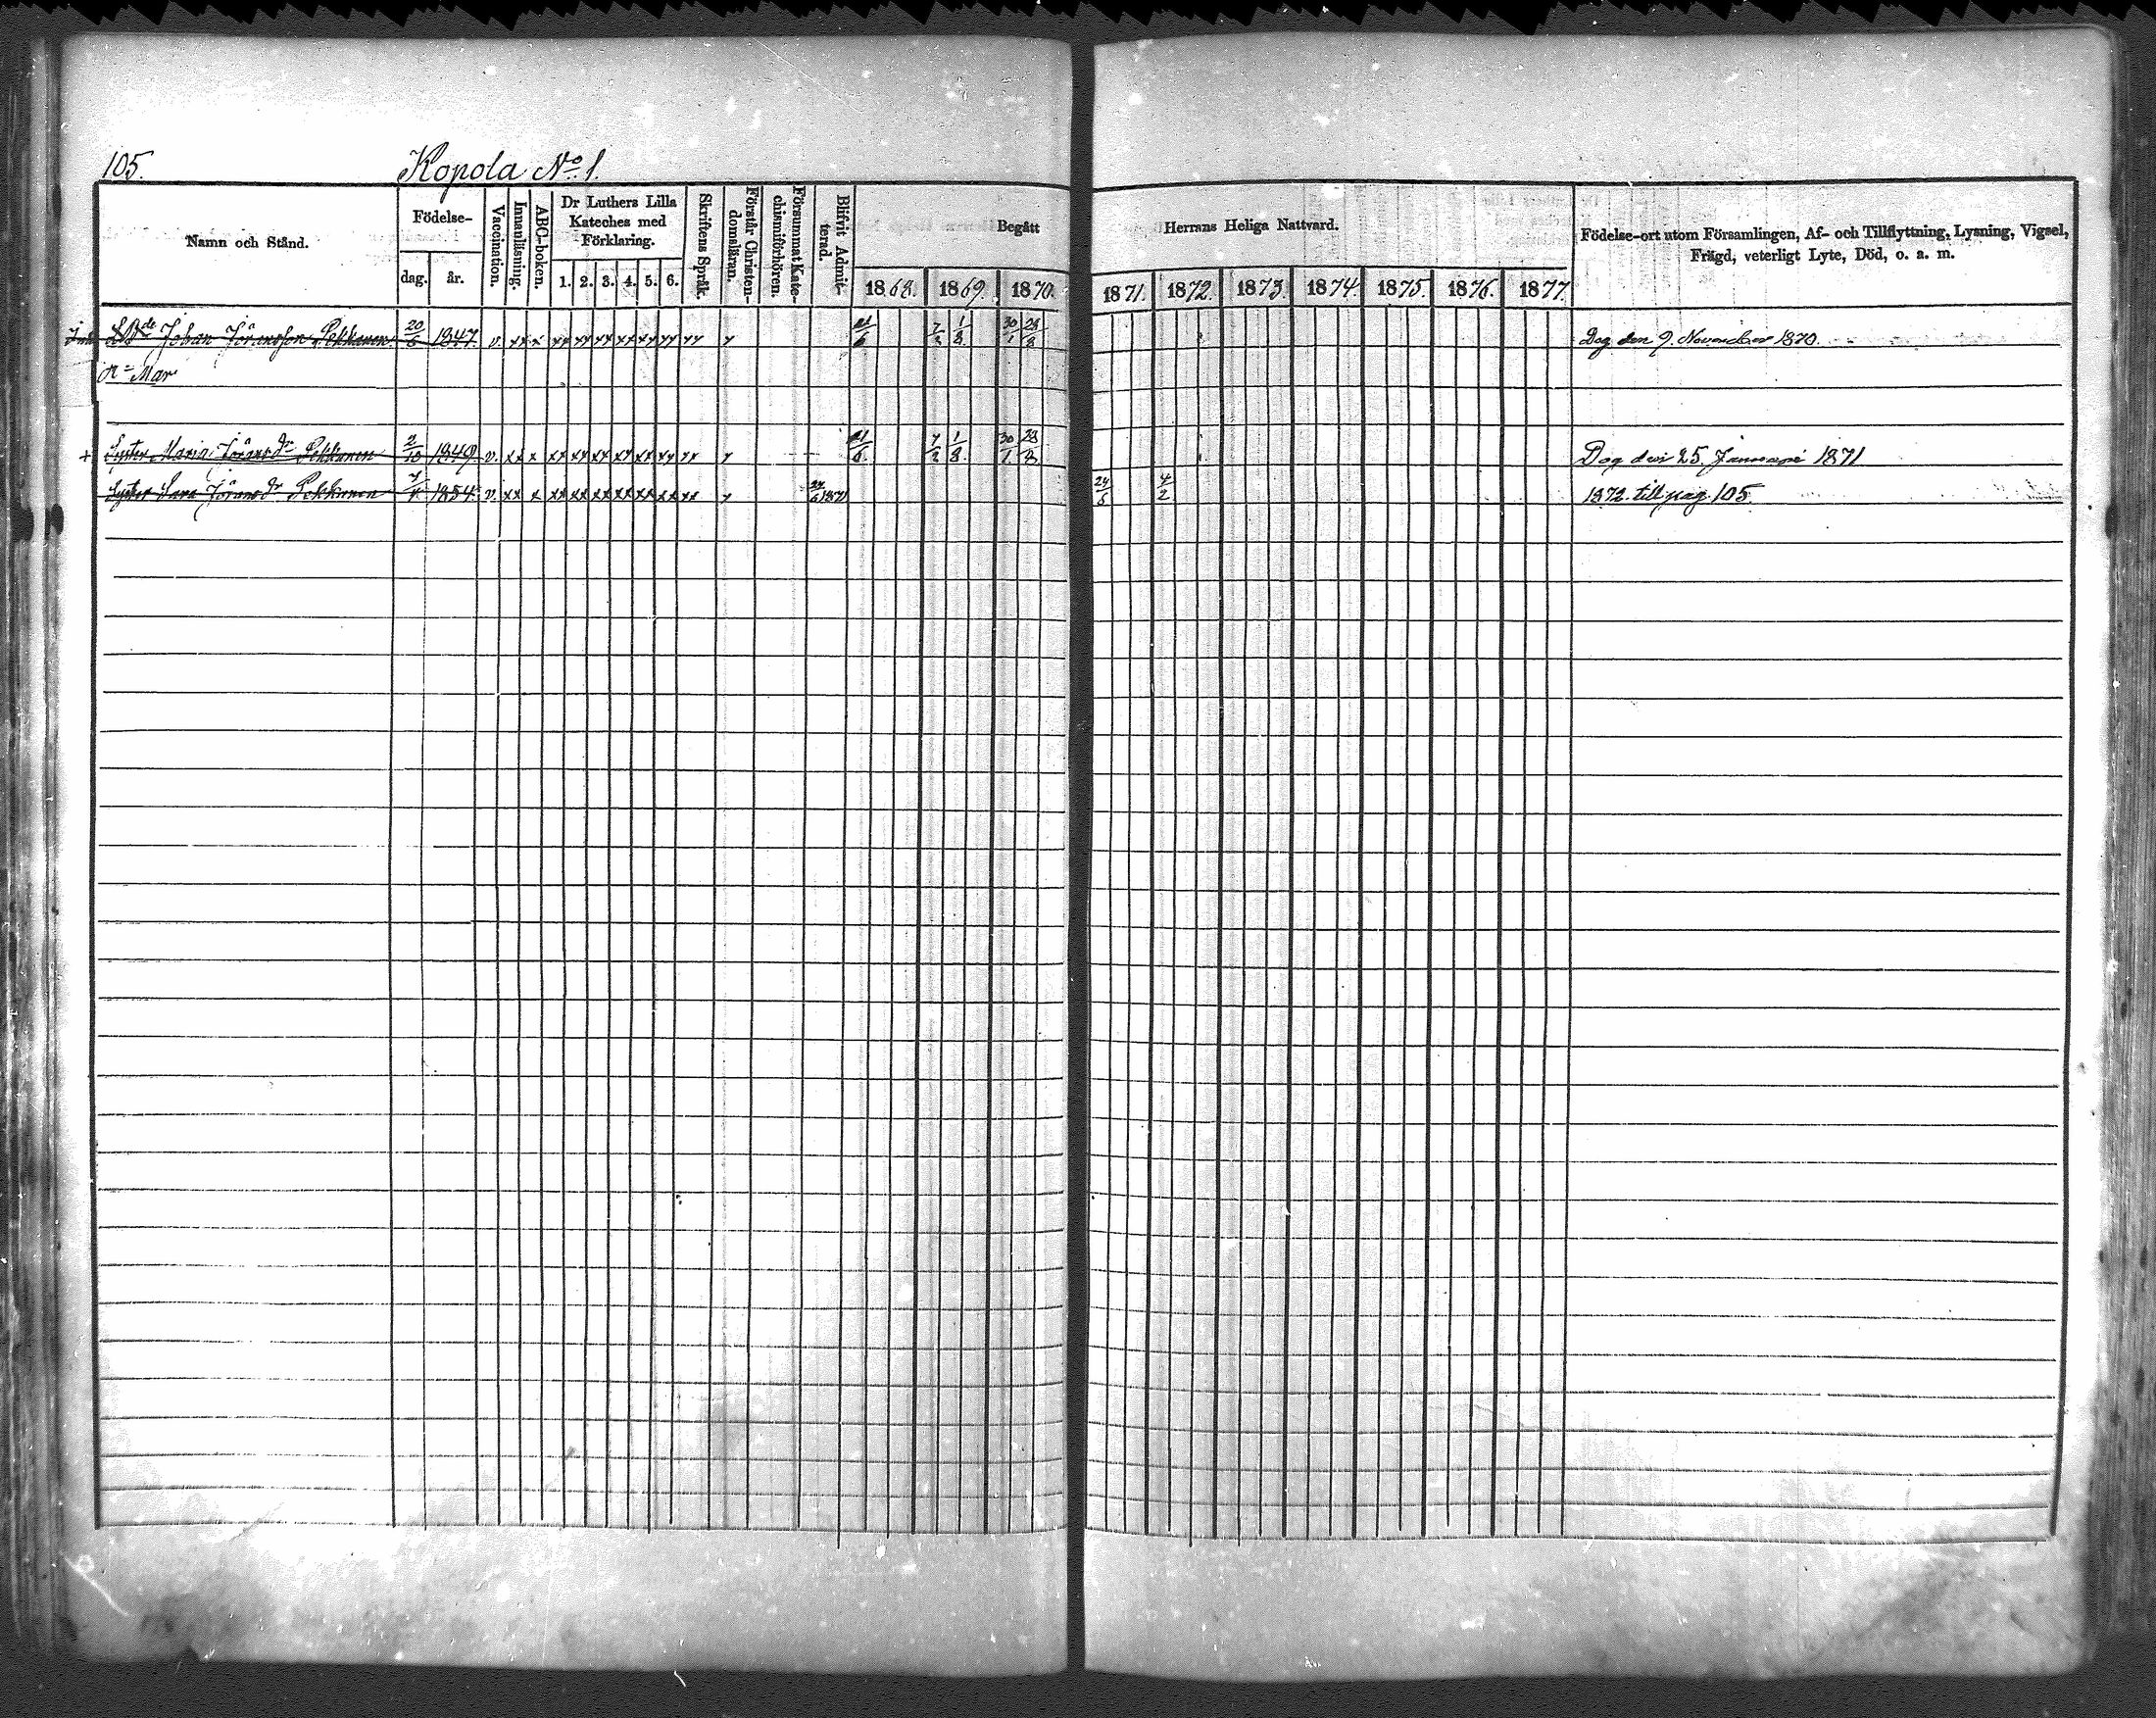 105.
Kopola No. 1.
Namn och Stånd.
Födelse-
dag.
år.
Vaccination.
Innanläsning.
ABC-boken.
Dr Luthers Lilla
Kateches med
Förklaring.
1. 2. 3. 4. 5. 6.
Skriftens Språk.
Förstår Christen-
domsläran.
Försummat Kate-
chismiförhören.
Blifvit Admit-
terad.
Begått
Herrans Heliga Nattvard.
1868. 1869. 1870. 1871. 1872. 1873. 1874. 1875. 1876. 1877.
Födelse-ort utom Församlingen, Af- och Tillflyttning, Lysning, Vigsel,
Frägd, veterligt Lyte, Död, o. a. m.
Johan Jöransson Pekkanen 20/6 1847. v. xx x xx xx xx xx xx xx xx x 21/6 7/2 1/8 30/1 28/8 Dog den 9. November 1870.
Mar
+ Syster Maria Jöransdr Pekkanen 2/10 1849 v. xx x xx xx xx xx xx xx xx x 21/6 7/2 1/8. 30/1. 28/8 Dog den 25. Januari 1871
Syster Sara Jöransdr Pekkanen 1854. v. xx x xx xx xx xx xx xx xx x 24/6 1871 24/6 4/2 1872. till pag. 105.